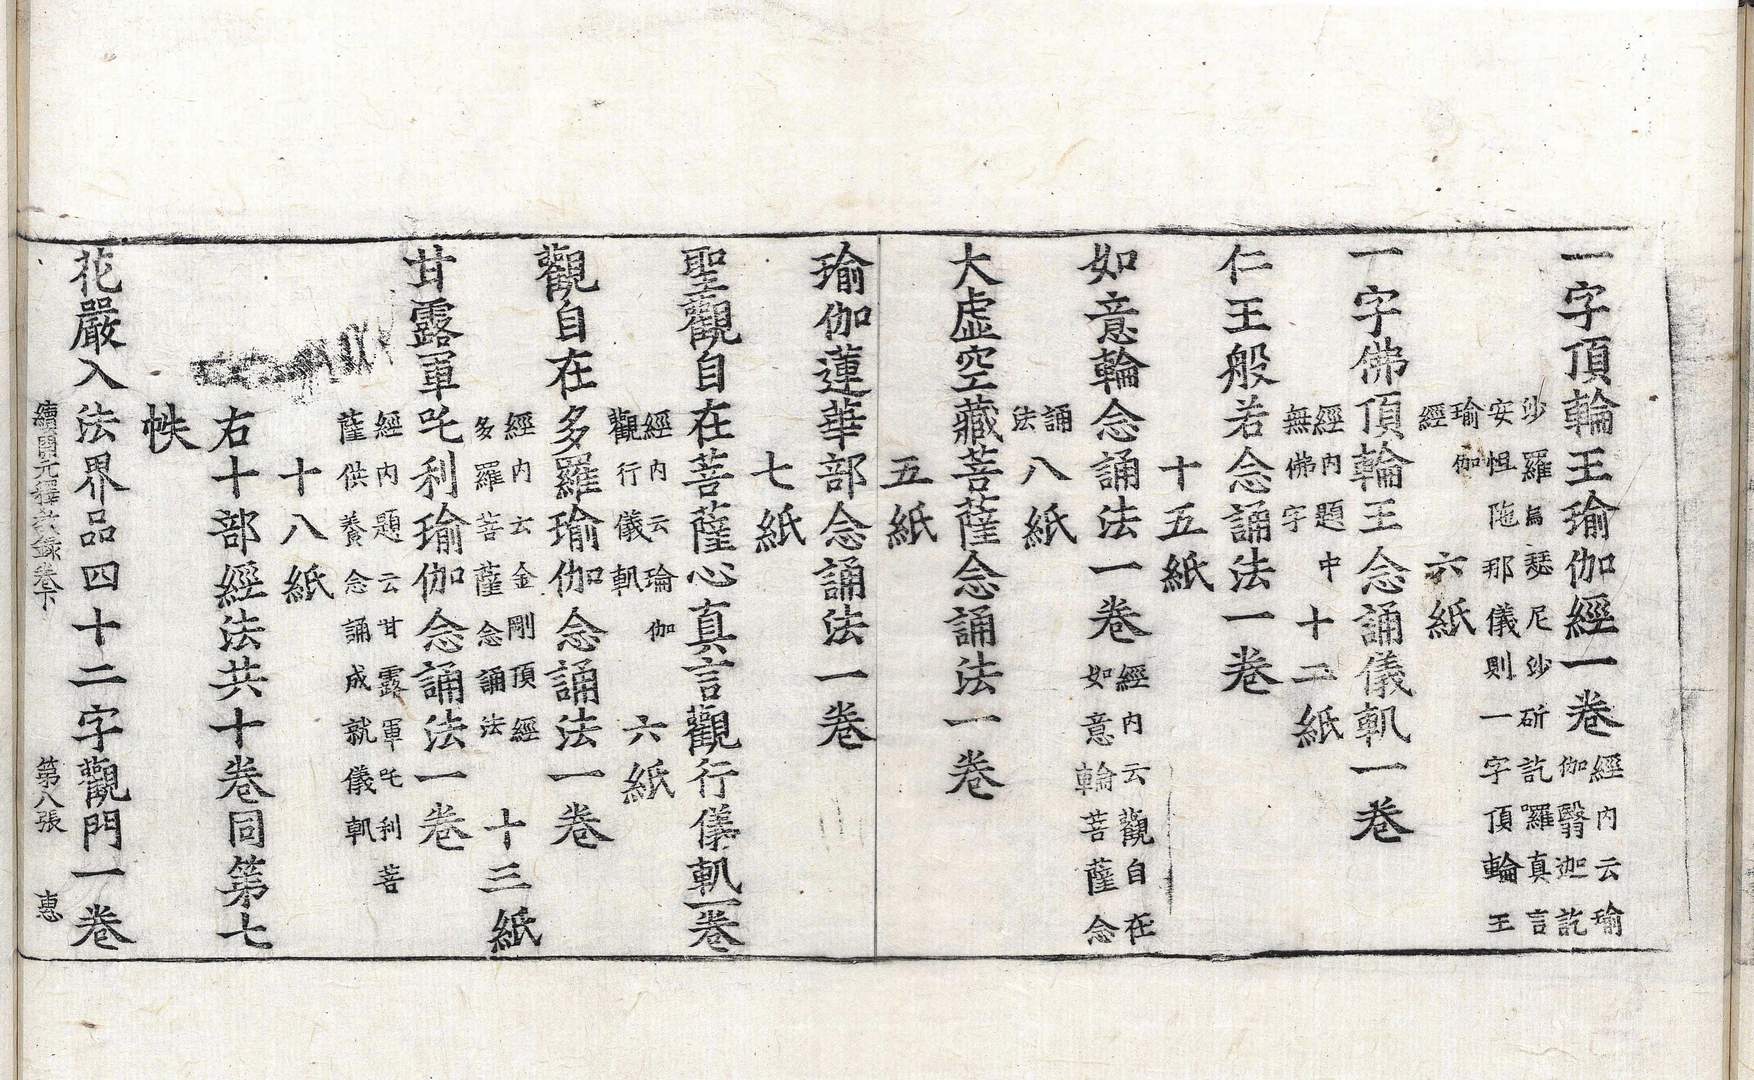 一字頂輪王瑜伽經一卷
經内云瑜
伽翳迦訖
沙羅烏瑟尼沙斫訖囉真言
安怛陁那儀則一字頂輪王
瑜伽
經
六紙
一字佛頂輪王念誦儀軌一卷
經内題中
無佛字
十二紙
仁王般若念誦法一卷
十五紙
如意輪念誦法一卷
經内云觀自在
如意輪菩薩念
誦
法
八紙
大虛空藏菩薩念誦法一卷
五紙
瑜伽蓮華部念誦法一卷
七紙
聖觀自在菩薩心真言觀行儀軌一卷
經内云瑜伽
觀行儀軌
六紙
觀自在多羅瑜伽念誦法一卷
經内云金剛頂經
多羅菩薩念誦法
十三紙
甘露軍吒利瑜伽念誦法一卷
經内題云甘露軍吒利菩
薩供養念誦成就儀軌
十八紙
右十部經法共十卷同第七
帙
花嚴入法界品四十二字觀門一卷
續開元釋教錄卷下 第八張 惠